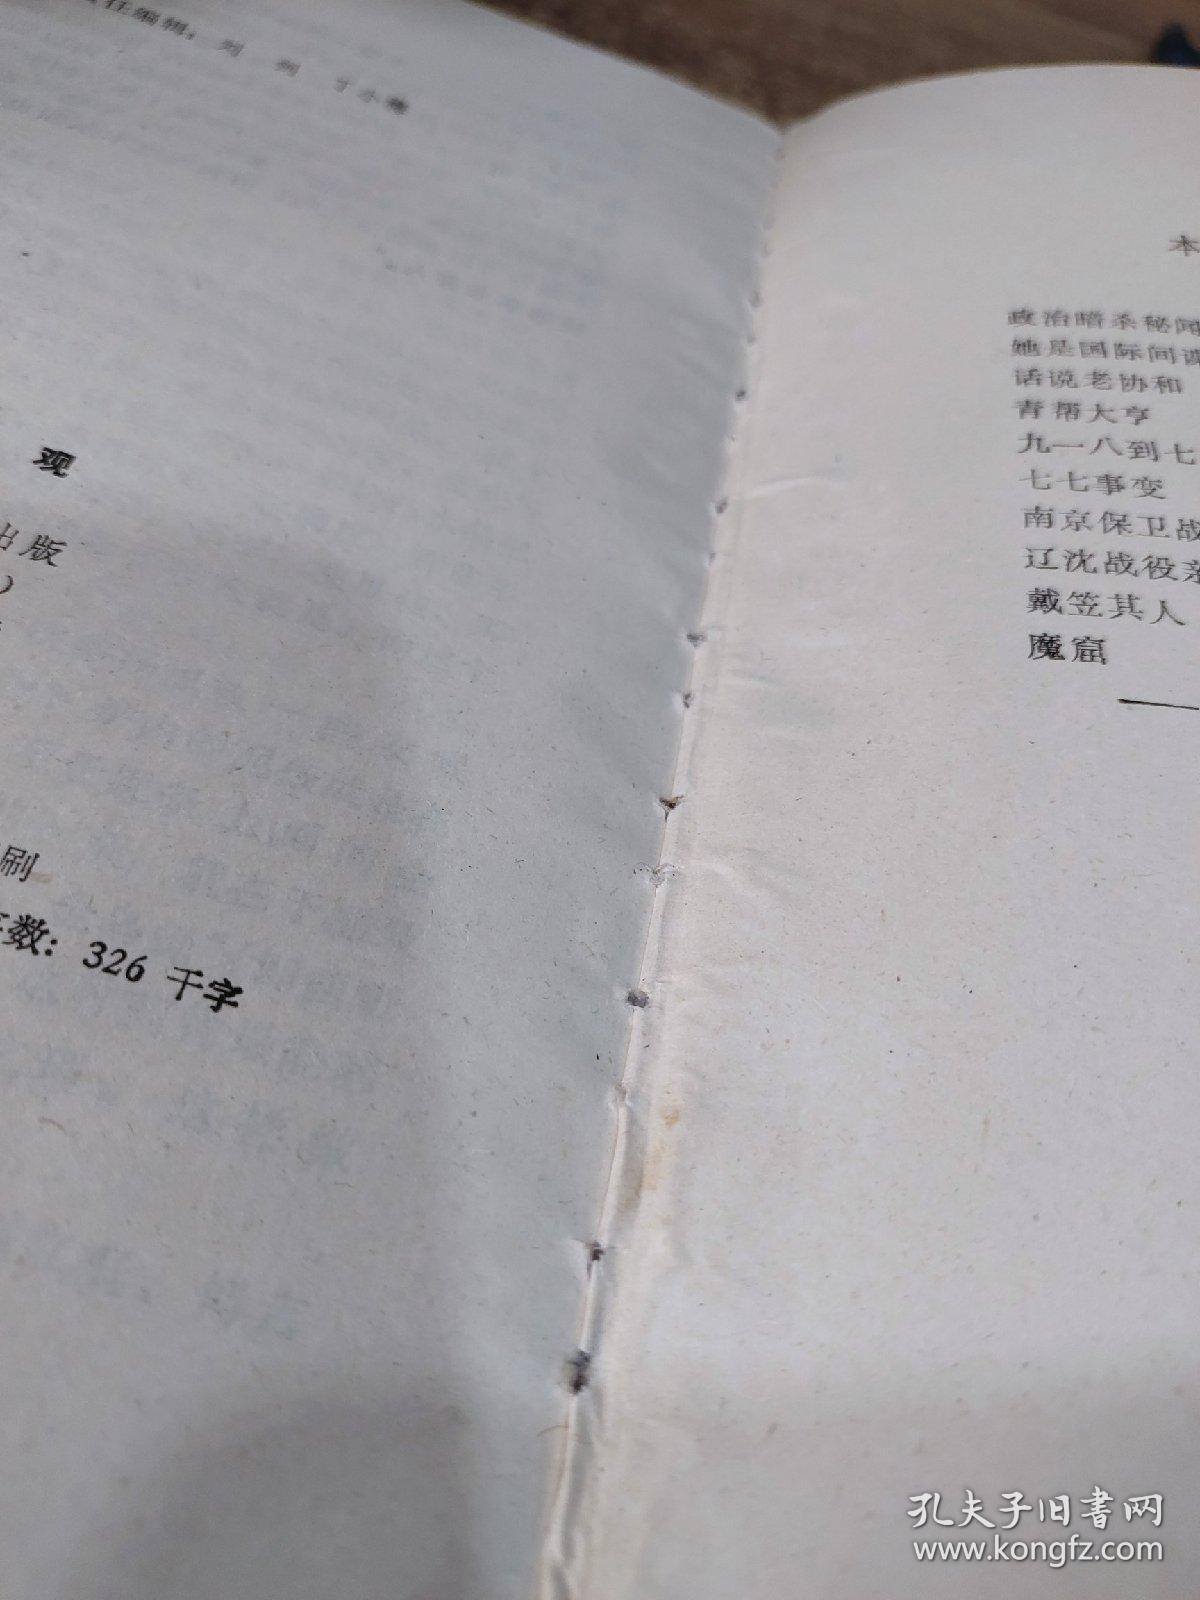 任编辑：刘 刚 丁小
观
出版
刷
数：326 千字
本
政治暗杀秘闻
她是国际间谍
话说老协和
青帮大亨
九一八到七
七七事变
南京保卫战
辽沈战役亲
戴笠其人
魔窟
孔夫子旧书网
www.kongfz.com